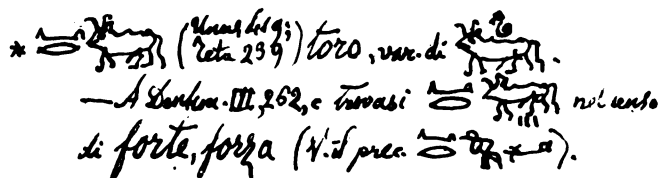 * (Unas Teta 239) toro, var. di .
— A Dendera. III, 262, e trovasi nel senso
di forte, forza (V. il prec. ).